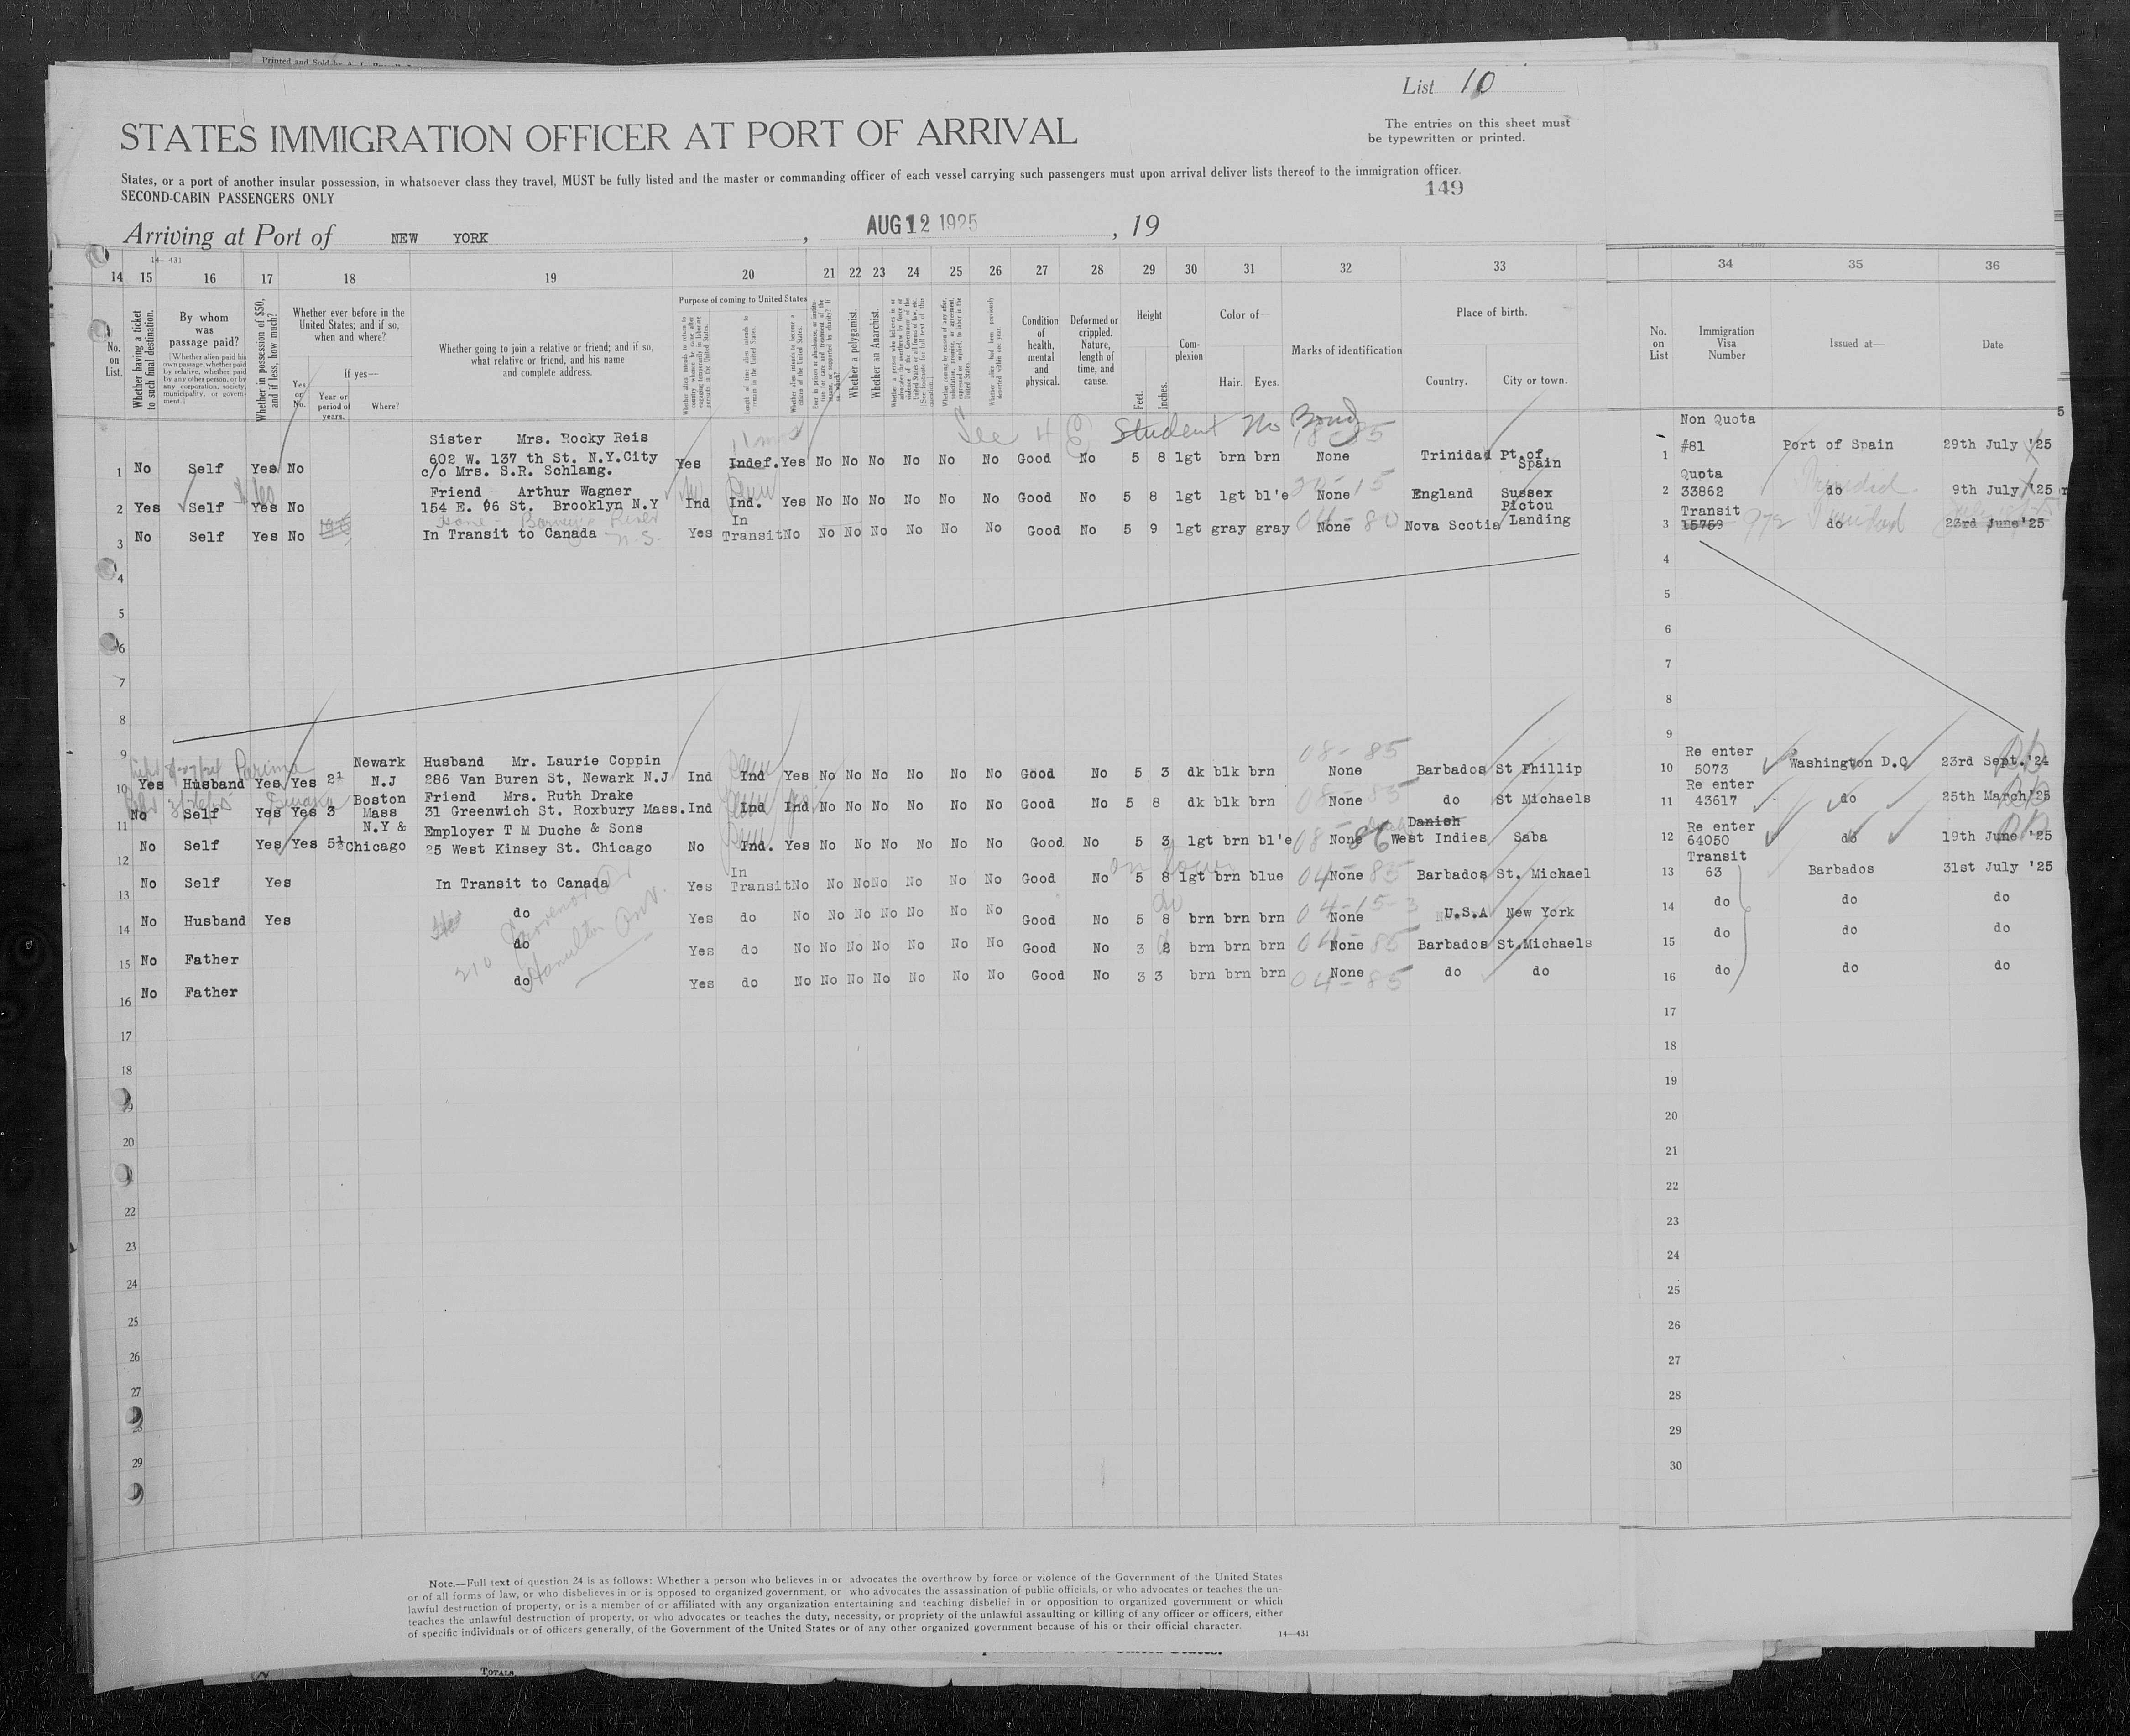 Printed and Sold by A. L.
List 10
STATES IMMIGRATION OFFICER AT PORT OF ARRIVAL
The entries on this sheet must
be typewritten or printed.
States, or a port of another insular possession, in whatsoever class they travel, MUST be fully listed and the master or commanding officer of each vessel carrying such passengers must upon arrival deliver lists thereof to the immigration officer.
SECOND-CABIN PASSENGERS ONLY
149
Arriving at Port of NEW YORK , AUG 12 1925 , 19
14—431
14 15 16 17 18 19 20 21 22 23 24 25 26 27 28 29 30 31 32 33 34 35 36
No. on List.
Whether having a ticket to such final destination.
By whom was passage paid?
(Whether alien paid his own passage, whether paid by relative, whether paid by any other person, or by any corporation, society, municipality, or government.)
Whether in possession of $50, and if less, how much?
Whether ever before in the United States; and if so, when and where?
Yes or No.
If yes—
Year or period of years.
Where?
Whether going to join a relative or friend; and if so, what relative or friend, and his name and complete address.
Purpose of coming to United States
Length of time alien intends to remain in the United States.
Whether alien intends to become a citizen of the United States.
Whether a polygamist.
Whether an Anarchist.
Condition of health, mental and physical.
Deformed or crippled. Nature, length of time, and cause.
Height
Feet. Inches.
Complexion
Color of—
Hair. Eyes.
Marks of identification
Place of birth.
Country. City or town.
No. on List
Immigration Visa Number
Issued at—
Date
See Student No Bond
Sister Mrs. Rocky Reis
602 W. 137 th St. N.Y.City
c/o Mrs. S.R. Schlang.
1 No Self Yes No Yes Indef. Yes No No No No No No Good No 5 8 lgt brn brn None Trinidad Pt. of Spain
1 Non Quota #81 Port of Spain 29th July '25
Friend Arthur Wagner
154 E. 96 St. Brooklyn N.Y
2 Yes Self Yes No Ind Ind. Yes No No No No No No Good No 5 8 lgt lgt bl'e None England Sussex
2 Quota 33862 do 9th July '25
3 No Self Yes No In Transit to Canada Yes In Transit No No No No No No No Good No 5 9 lgt gray gray None Nova Scotia Pictou Landing
3 Transit 15759 972 do 23rd June '25
4 4
5 5
6 6
7 7
8 8
9 9
Husband Mr. Laurie Coppin
10 Yes Husband Yes Yes 2½ Newark N.J 286 Van Buren St, Newark N.J Ind Ind Yes No No No No No No Good No 5 3 dk blk brn None Barbados St Phillip
08-85
10 Re enter 5073 Washington D.C 23rd Sept.'24
Friend Mrs. Ruth Drake
11 No Self Yes Yes 3 Boston Mass 31 Greenwich St. Roxbury Mass. Ind Ind Ind No No No No No No Good No 5 8 dk blk brn None do St Michaels
08-85
11 Re enter 43617 do 25th March '25
Employer T M Duche & Sons
12 No Self Yes Yes 5½ N.Y & Chicago 25 West Kinsey St. Chicago No Ind. Yes No No No No No No Good No 5 3 lgt brn bl'e None Danish West Indies Saba
08-86
12 Re enter 64050 do 19th June '25
13 No Self Yes In Transit to Canada Yes In Transit No No No No No No No Good No 5 8 lgt brn blue None Barbados St. Michael
04-85
13 Transit 63 Barbados 31st July '25
14 No Husband Yes do Yes do No No No No No No No Good No 5 8 brn brn brn None U.S.A New York
04-15-3
14 do do do
15 No Father do Yes do No No No No No No No Good No 3 2 brn brn brn None Barbados St.Michaels
04-85
15 do do do
210 Hamilton Ont.
16 No Father do Yes do No No No No No No No Good No 3 3 brn brn brn None do do
04-85
16 do do do
17 17
18 18
19 19
20 20
21 21
22 22
23 23
24 24
25 25
26 26
27 27
28 28
29 29
30
Note.—Full text of question 24 is as follows: Whether a person who believes in or advocates the overthrow by force or violence of the Government of the United States
or of all forms of law, or who disbelieves in or is opposed to organized government, or who advocates the assassination of public officials, or who advocates or teaches the un-
lawful destruction of property, or is a member of or affiliated with any organization entertaining and teaching disbelief in or opposition to organized government or which
teaches the unlawful destruction of property, or who advocates or teaches the duty, necessity, or propriety of the unlawful assaulting or killing of any officer or officers, either
of specific individuals or of officers generally, of the Government of the United States or of any other organized government because of his or their official character.
14—431
TOTALS